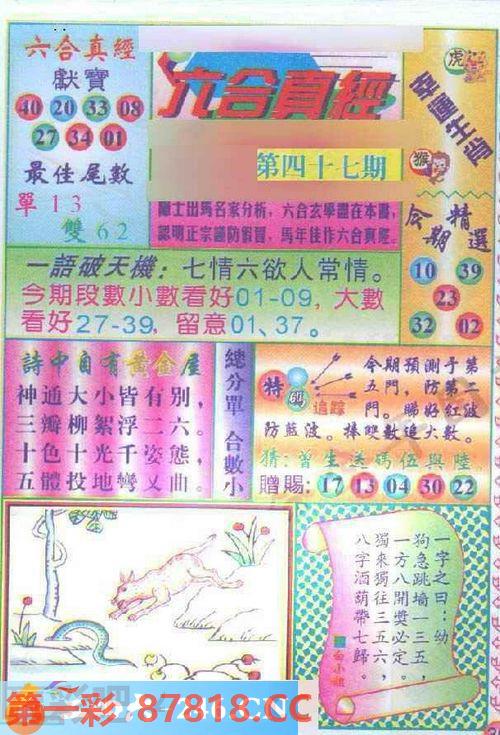 六合真經
獻寶
40 20 33 08
27 34 01
最佳尾數
單13
雙62
六合真經
第四十七期
師士出馬名家分析，六合玄學盡在本書，
認明正宗謹防假冒，馬年佳作六合真經。
虎
幸運生肖
猴
今期精選
10 39
23
32 02
一語破天機：七情六欲人常情。
今期段數小數看好01-09，大數
看好27-39，留意01、37。
詩中自有黃金屋
神通大小皆有別，
三瓣柳絮浮二六。
十色十光千姿態，
五體投地彎又曲。
總分單 合數小
特碼
追踪
今期預測于第
五門，防第二
門。睇好紅波
防藍波。捧雙數追大數。
猜：曾生送碼伍與陸。
贈賜：17 13 04 30 22
一字之曰：幼
狗急跳墻一三五，
一方八開獎必定。
獨來獨往三五六，
八字酒葫帶七歸。
白小姐
第一彩：87818.CC